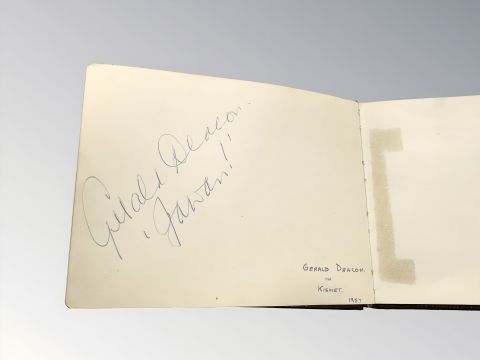 Gerald Deacon.
'Jawan!'
GERALD DEACON.
IN
KISMET.
1957